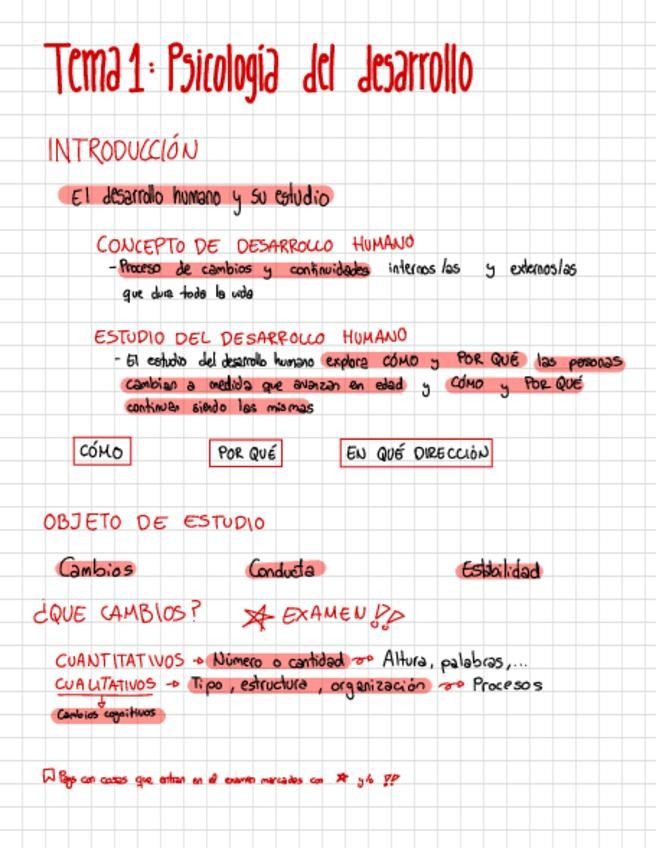 Tema 1: Psicología del desarrollo
INTRODUCCIÓN
El desarrollo humano y su estudio
CONCEPTO DE DESARROLLO HUMANO
- Proceso de cambios y continuidades internos/as y externos/as
que dura toda la vida
ESTUDIO DEL DESARROLLO HUMANO
- El estudio del desarrollo humano explora CÓMO y POR QUÉ las personas
cambian a medida que avanzan en edad y CÓMO y POR QUÉ
continuan siendo las mismas
CÓMO POR QUÉ EN QUÉ DIRECCIÓN
OBJETO DE ESTUDIO
Cambios Conducta Estabilidad
¿QUE CAMBIOS? ☆ EXAMEN!!
CUANTITATIVOS → Número o cantidad → Altura, palabras,...
CUALITATIVOS → Tipo, estructura, organización → Procesos
Cambios cognitivos
con cosas que entran en el examen marcadas con ☆ y/o !!